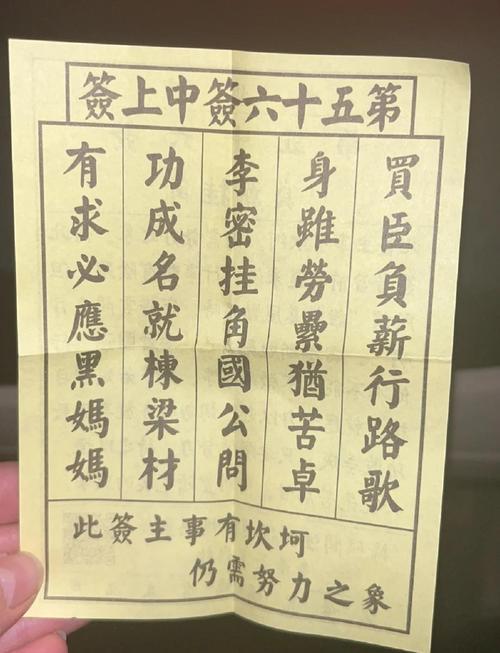 第五十六簽中上簽
買臣負薪行路歌
身雖勞纍猶苦卓
李密挂角國公問
功成名就棟梁材
有求必應黑媽媽
此簽主事有坎坷
仍需努力之象